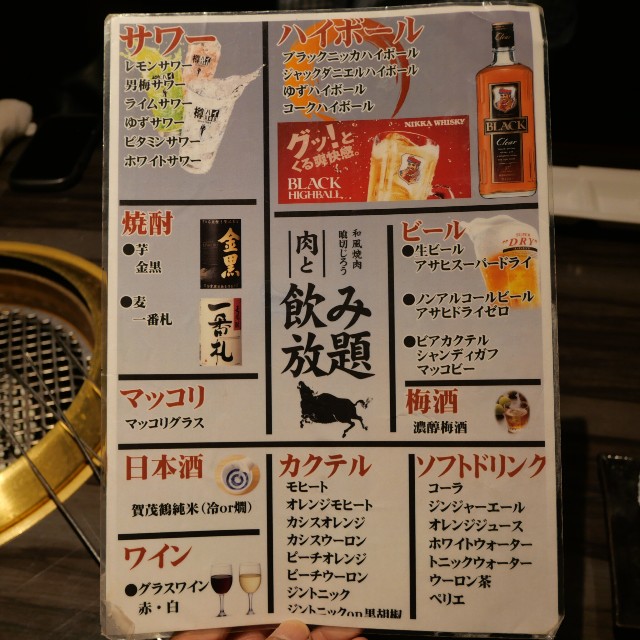 サワー
レモンサワー
男梅サワー
ライムサワー
ゆずサワー
ビタミンサワー
ホワイトサワー
ハイボール
ブラックニッカハイボール
ジャックダニエルハイボール
ゆずハイボール
コークハイボール
NIKKA WHISKY
グッ!と
くる爽快感。
BLACK
HIGHBALL
BLACK
Clear
焼酎
●芋
金黒
●麦
一番札
金黒
一番札
和風焼肉
喰切じろう
肉と
飲み
放題
ビール
●生ビール
アサヒスーパードライ
●ノンアルコールビール
アサヒドライゼロ
●ビアカクテル
シャンディガフ
マッコビー
DRY
マッコリ
マッコリグラス
梅酒
濃醇梅酒
日本酒
賀茂鶴純米(冷or燗)
ワイン
●グラスワイン
赤・白
カクテル
モヒート
オレンジモヒート
カシスオレンジ
カシスウーロン
ピーチオレンジ
ピーチウーロン
ジントニック
ジントニックon黒胡椒
ソフトドリンク
コーラ
ジンジャーエール
オレンジジュース
ホワイトウォーター
トニックウォーター
ウーロン茶
ペリエ